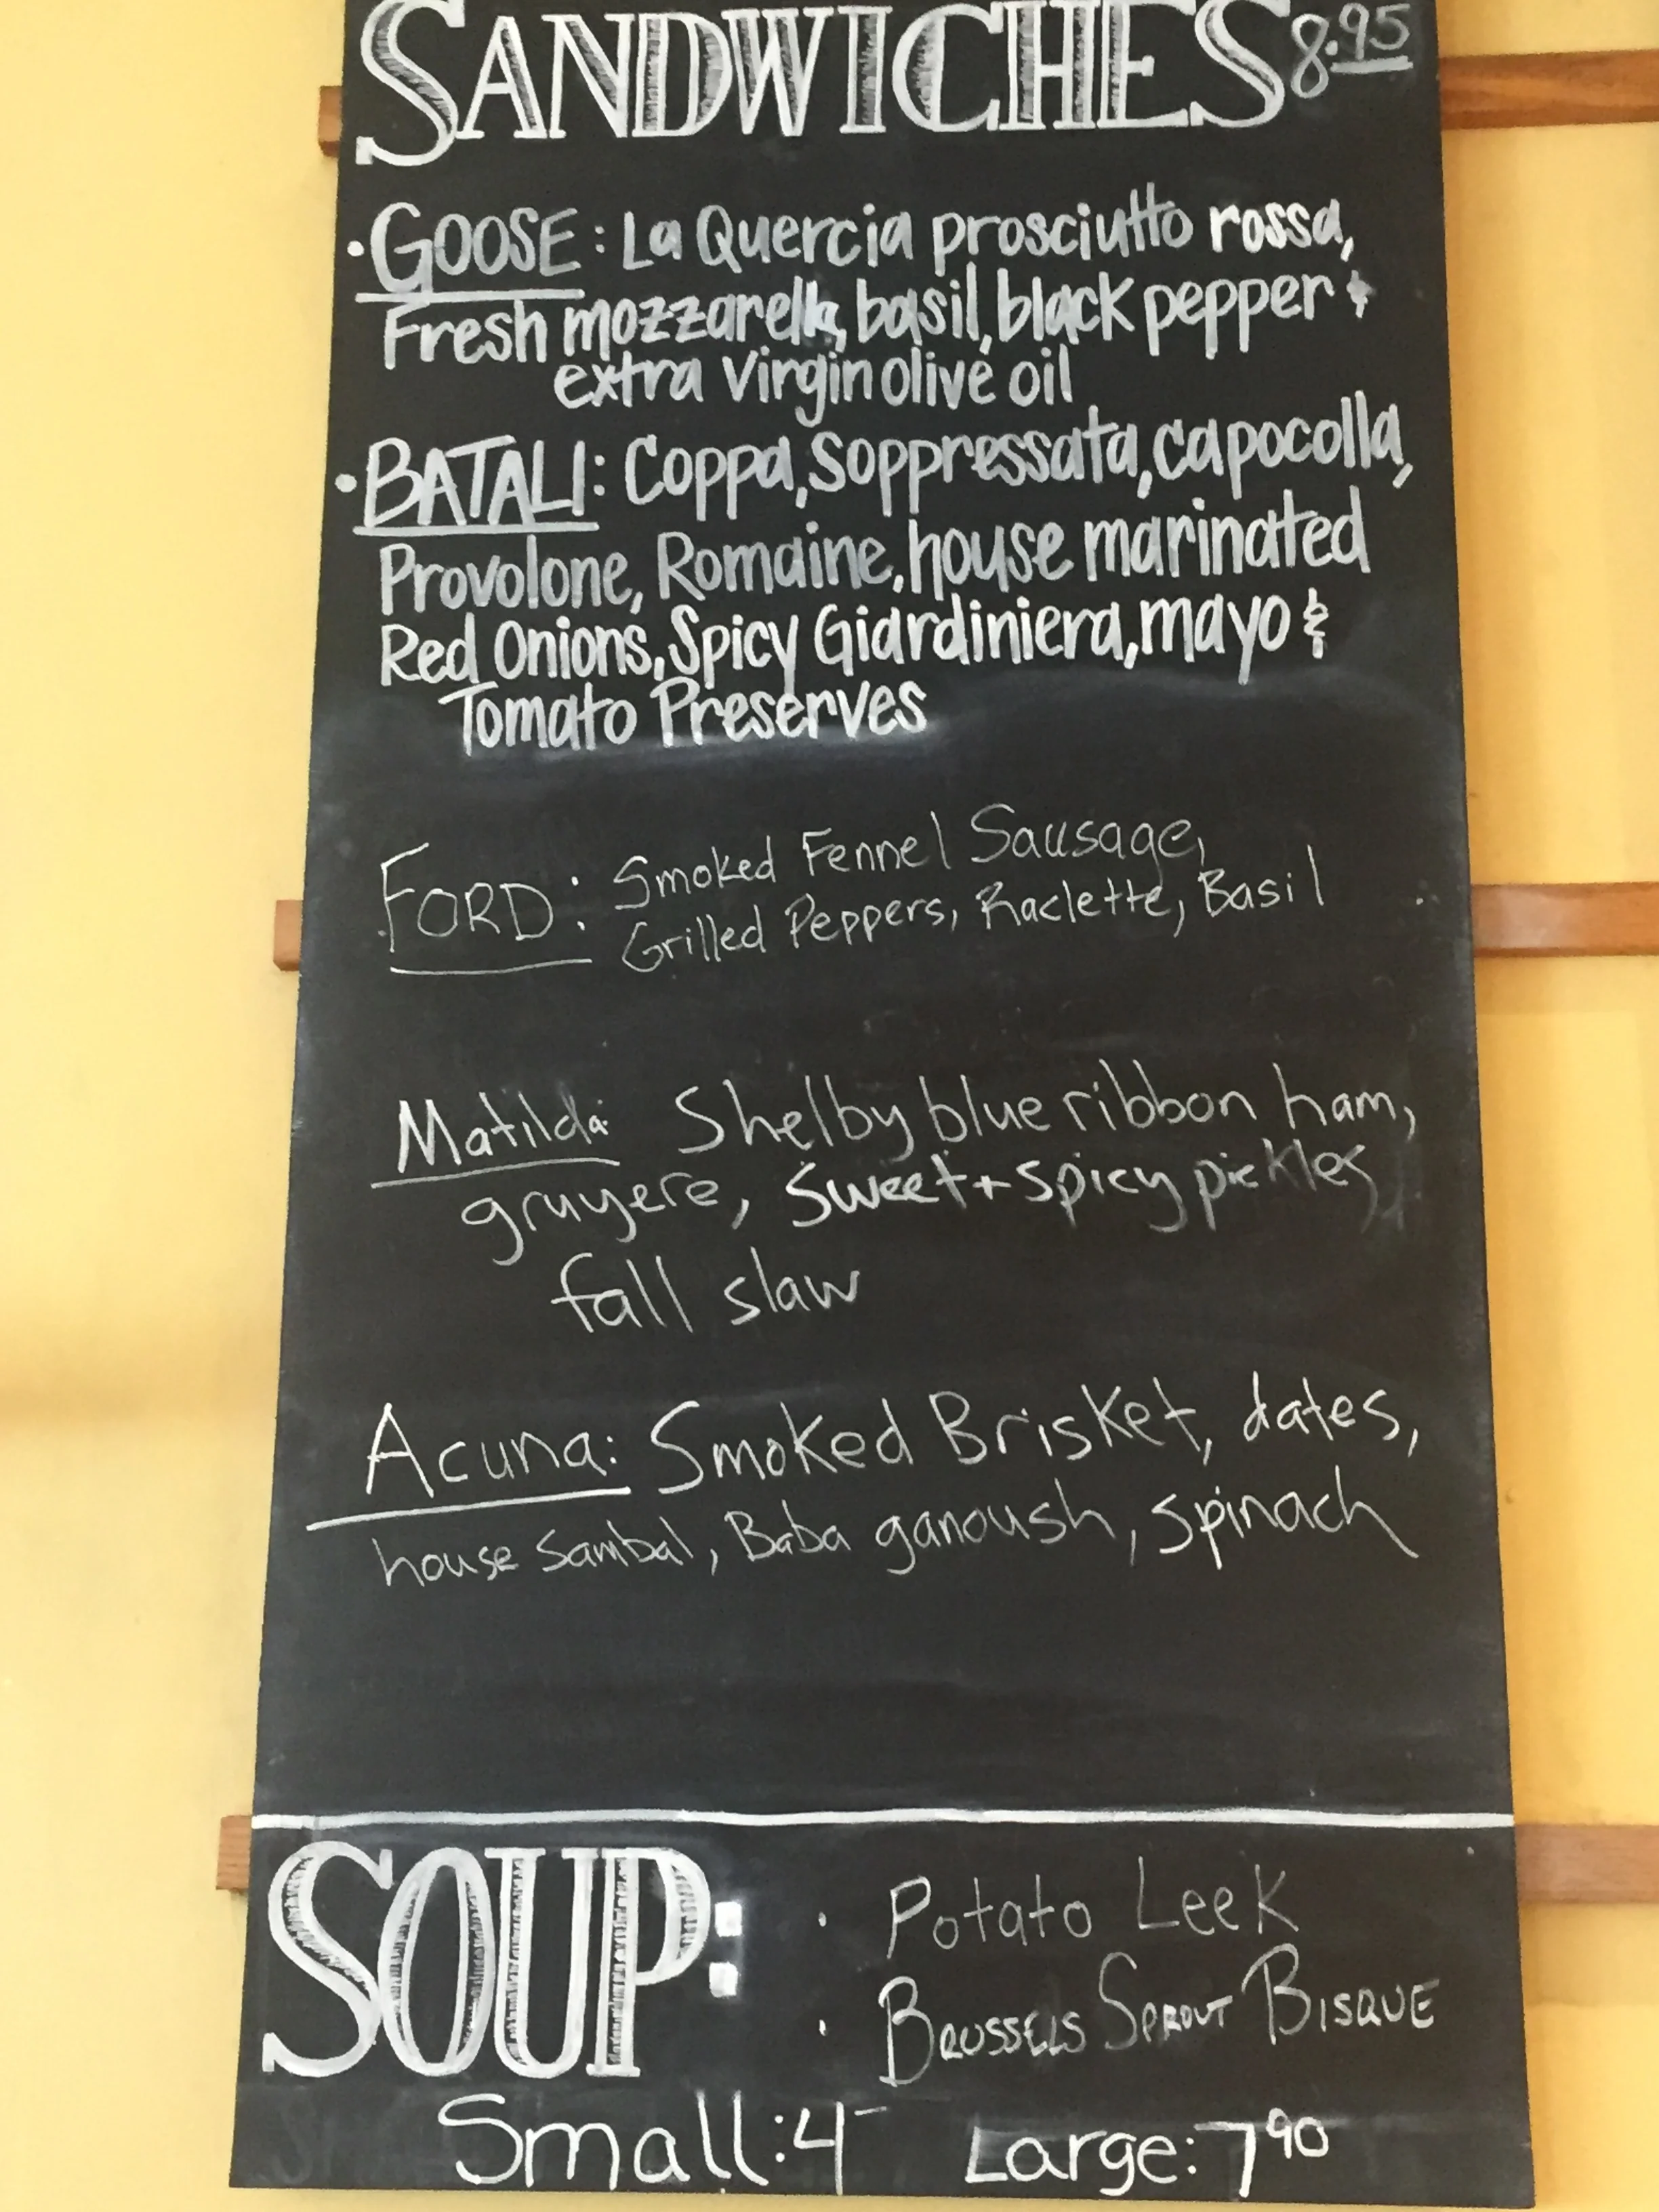 SANDWICHES 8.95
• GOOSE: La Quercia prosciutto rossa,
Fresh mozzarella, basil, black pepper &
extra Virgin olive oil
• BATALI: Coppa, Soppressata, capocolla,
Provolone, Romaine, house marinated
Red Onions, Spicy Giardiniera, mayo &
Tomato Preserves
FORD: Smoked Fennel Sausage,
Grilled Peppers, Raclette, Basil
Matilda: Shelby blue ribbon ham,
gruyere, sweet + spicy pickles,
fall slaw
Acuna: Smoked Brisket, dates,
house Sambal, Baba ganoush, spinach
SOUP:
• Potato Leek
• BRUSSELS SPROUT BISQUE
Small: 4- Large: 7 90